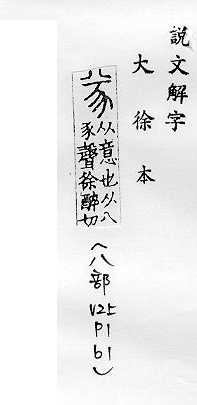 說文解字
大徐本
㒸
从意也从八
豕聲徐醉切
(八部
V2上
P1
b1)